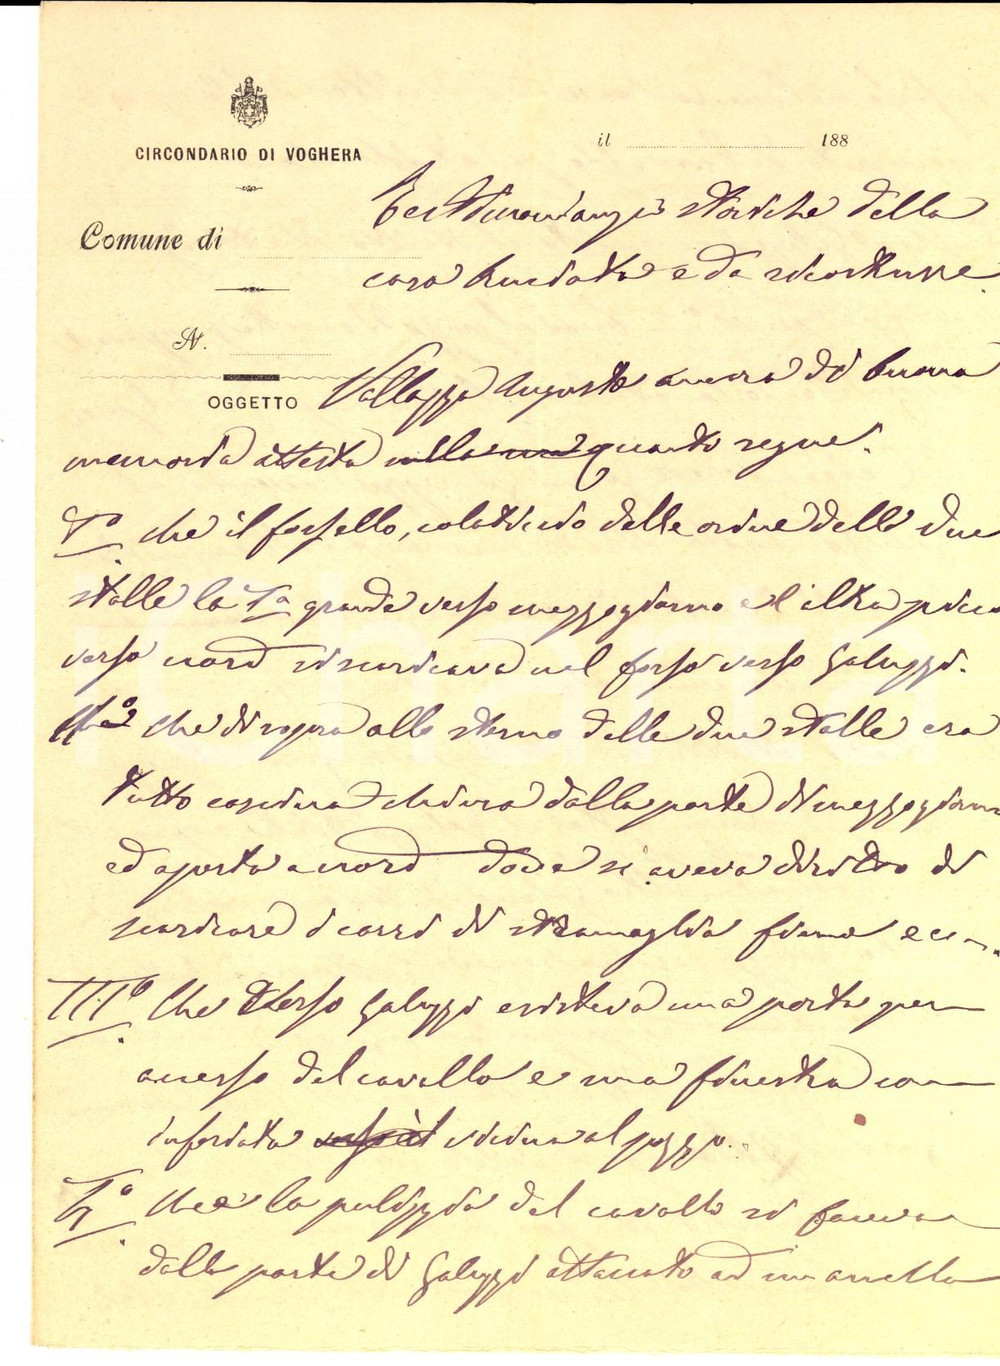 il 188
CIRCONDARIO DI VOGHERA
Testimonianze storiche della
Comune di
casa bruciata e da ricostruire
N.
OGGETTO
Augusto ancora di buona
memoria attesta quanto segue.
I° che il fossello, colaticcio delle orine delle due
stalle la 1a grande verso mezzogiorno e l'altra picco
verso nord si scaricava nel fosso verso Galuzzi.
che di sopra allo sterno delle due stalle era
tutto cascina chiusa dalla parte di mezzogiorno
ed aperta a nord dove si aveva diritto di
scaricare i carri di stramaglia fieno ecc.
III° Che verso Galuzzi esisteva una porta per
accesso del cavallo e una finestra con
inferiata vicina al pozzo.
che la pulizzia del cavallo si faceva
dalla parte di Galuzzi attaccato ad un anello